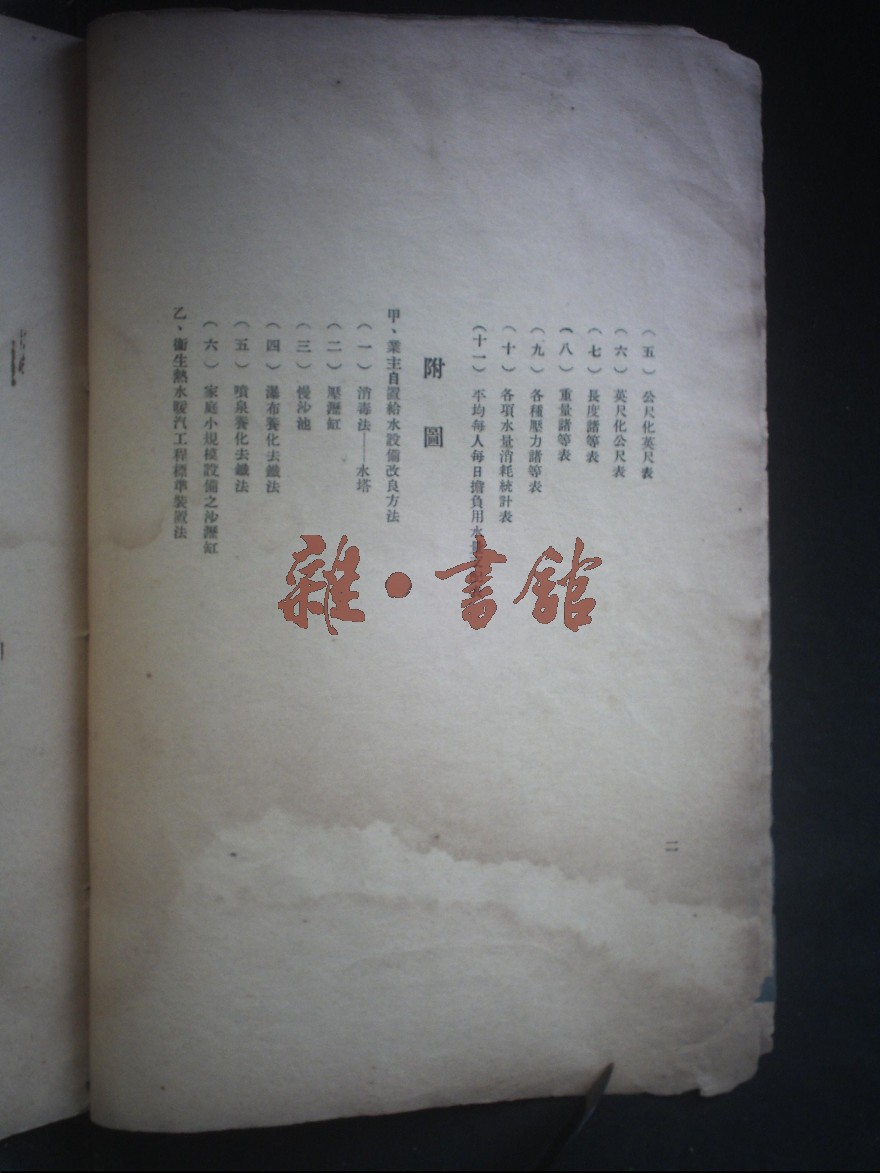 （五）公尺化英尺表
（六）英尺化公尺表
（七）長度諸等表
（八）重量諸等表
（九）各種壓力諸等表
（十）各項水量消耗統計表
（十一）平均每人每日擔負用水
附圖
甲、業主自置給水設備改良方法
（一）消毒法——水塔
（二）壓瀝缸
（三）慢沙池
（四）瀑布養化去鐵法
（五）噴泉養化去鐵法
（六）家庭小規模設備之沙瀝缸
乙、衛生熱水暖汽工程標準裝置法
二
雜·書館